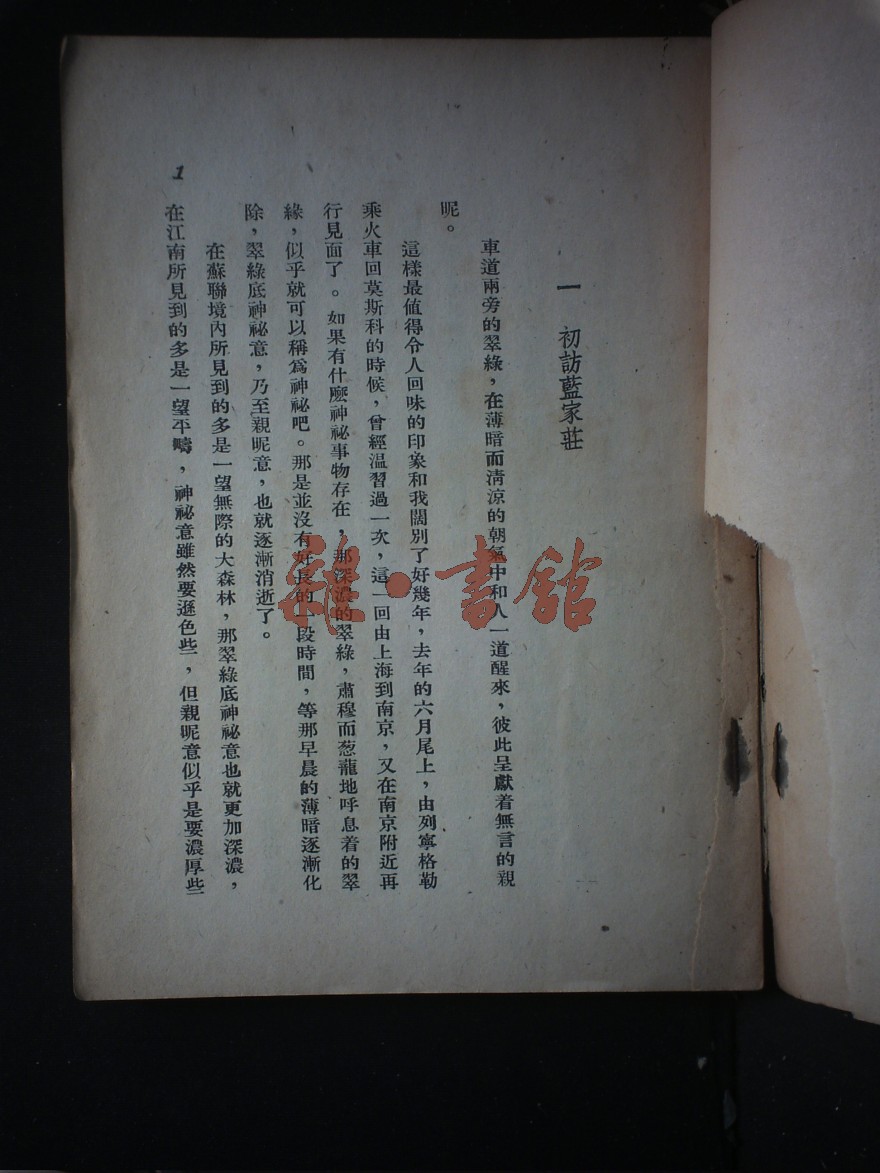 一　初訪藍家莊
車道兩旁的翠綠，在薄暗而清涼的朝氣中和人一道醒來，彼此呈獻着無言的親
昵。
這樣最值得令人回味的印象和我闊別了好幾年，去年的六月尾上，由列寧格勒
乘火車回莫斯科的時候，曾經温習過一次，這一回由上海到南京，又在南京附近再
行見面了。如果有什麽神祕事物存在，那深濃的翠綠，肅穆而葱蘢地呼息着的翠
綠，似乎就可以稱爲神祕吧。那是並沒有好長的一段時間，等那早晨的薄暗逐漸化
除，翠綠底神祕意，乃至親昵意，也就逐漸消逝了。
在蘇聯境內所見到的多是一望無際的大森林，那翠綠底神祕意也就更加深濃，
在江南所見到的多是一望平疇，神祕意雖然要遜色些，但親昵意似乎是要濃厚些
1
雜·書館